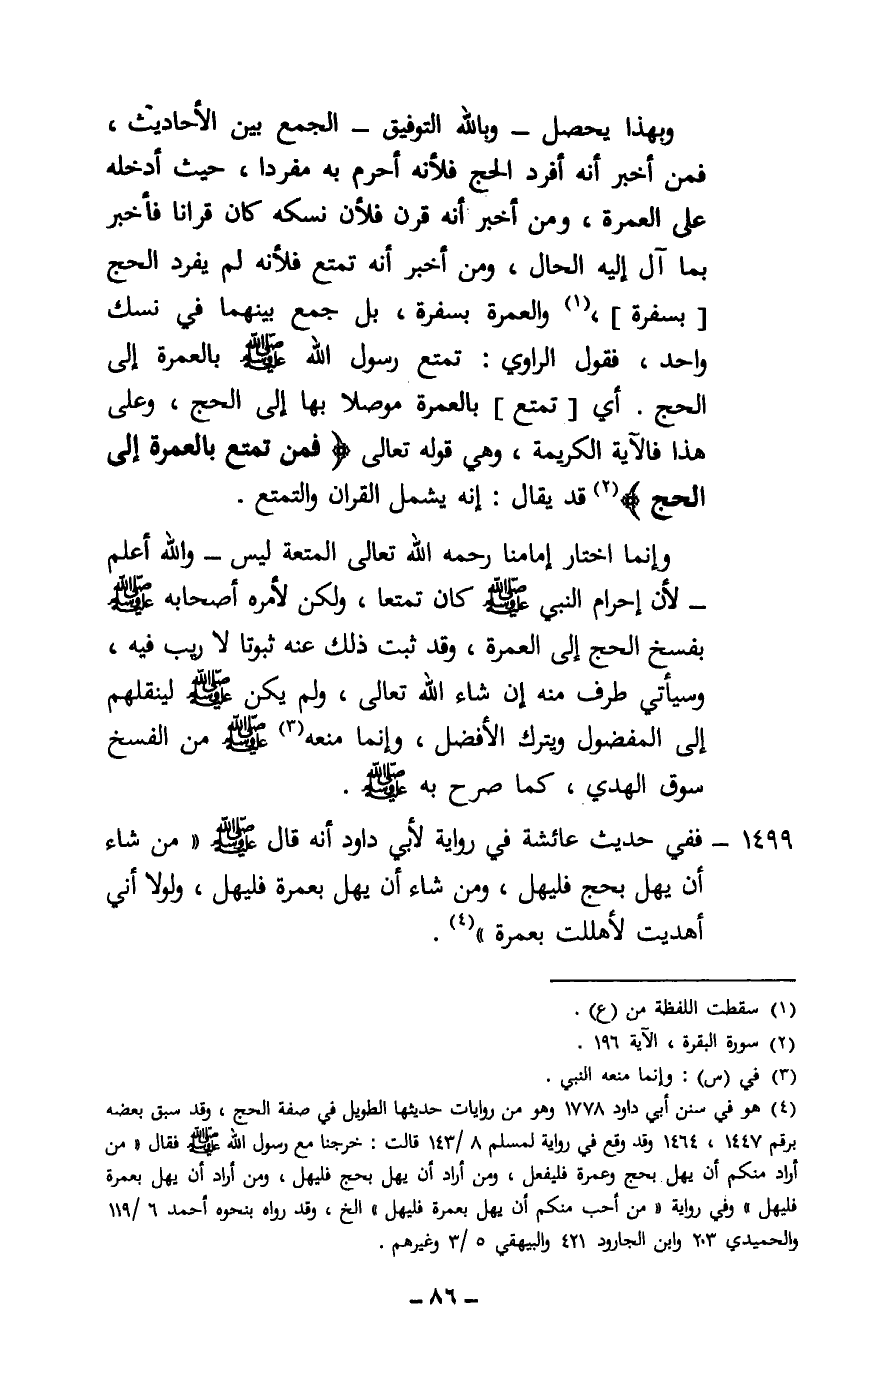 وبهذا يحصل ــ وبالله التوفيق ــ الجمع بين الأحاديث ،
فمن أخبر أنه أفرد الحج فلأنه أحرم به مفردا ، حيث أدخله
على العمرة ، ومن أخبر أنه قرن فلأن نسكه كان قرانا فأخبر
بما آل إليه الحال ، ومن أخبر أنه تمتع فلأنه لم يفرد الحج
[ بسفرة ] ،(١) والعمرة بسفرة ، بل جمع بينهما في نسك
واحد ، فقول الراوي : تمتع رسول الله ﷺ بالعمرة إلى
الحج . أي [ تمتع ] بالعمرة موصلا بها إلى الحج ، وعلى
هذا فالآية الكريمة ، وهي قوله تعالى ﴿ فمن تمتع بالعمرة إلى
الحج ﴾(٢) قد يقال : إنه يشمل القران والتمتع .
وإنما اختار إمامنا رحمه الله تعالى المتعة ليس ــ والله أعلم
ــ لأن إحرام النبي ﷺ كان تمتعا ، ولكن لأمره أصحابه ﷺ
بفسخ الحج إلى العمرة ، وقد ثبت ذلك عنه ثبوتا لا ريب فيه ،
وسيأتي طرف منه إن شاء الله تعالى ، ولم يكن ﷺ لينقلهم
إلى المفضول ويترك الأفضل ، وإنما منعه(٣) ﷺ من الفسخ
سوق الهدي ، كما صرح به ﷺ .
١٤٩٩ ــ ففي حديث عائشة في رواية لأبي داود أنه قال ﷺ « من شاء
أن يهل بحج فليهل ، ومن شاء أن يهل بعمرة فليهل ، ولولا أني
أهديت لأهللت بعمرة »(٤) .
(١) سقطت اللفظة من (ع) .
(٢) سورة البقرة ، الآية ١٩٦ .
(٣) في (س) : وإنما منعه النبي .
(٤) هو في سنن أبي داود ١٧٧٨ وهو من روايات حديثها الطويل في صفة الحج ، وقد سبق بعضه
برقم ١٤٤٧ ، ١٤٦٤ وقد وقع في رواية لمسلم ٨ /١٤٣ قالت : خرجنا مع رسول الله ﷺ فقال « من
أراد منكم أن يهل بحج وعمرة فليفعل ، ومن أراد أن يهل بحج فليهل ، ومن أراد أن يهل بعمرة
فليهل » وفي رواية « من أحب منكم أن يهل بعمرة فليهل » الخ ، وقد رواه بنحوه أحمد ٦ /١١٩
والحميدي ٢٠٣ وابن الجارود ٤٢١ والبيهقي ٥ /٣ وغيرهم .
ــ ٨٦ ــ